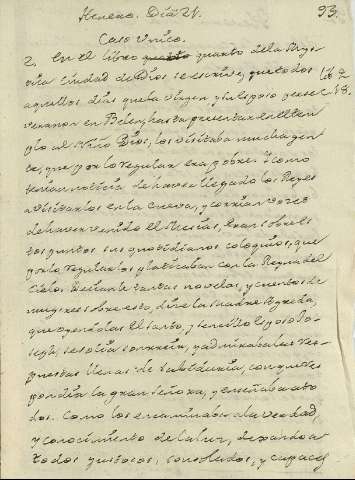 Henero. Dia 21. 93.
Caso Unico.
2. En el libro quarto de la Mys-
tica Ciudad de Dios, se escrive, que todos
aquellos dias que la Virgen, y su Esposo perse-
veraron en Belen, hasta presentar en el tem-
plo al Niño Dios, los visitaba mucha gen-
te, que por lo regular era pobre: y como
tenian noticia de haver llegado los Reyes
a visitarlos en la Cueva, y corrian voces
de haver venido el Mesias, eran sobre es-
tos puntos sus quotidianos coloquios, que
por lo regular los platicaban con la Reyna del
Cielo. Decianle tantas novelas, y cuentos de
mugeres sobre esto, dice la Madre Agreda,
que oyendolas el Santo, y sencillo Esposo Jo-
seph, se solia sonreir, y admiraba las res-
puestas llenas de sabiduria, con que res-
pondia la gran Señora, y enseñaba a to-
dos. Como los encaminaba a la verdad,
y conocimiento de la luz, dexando a
todos gustosos, consolados, y capaces